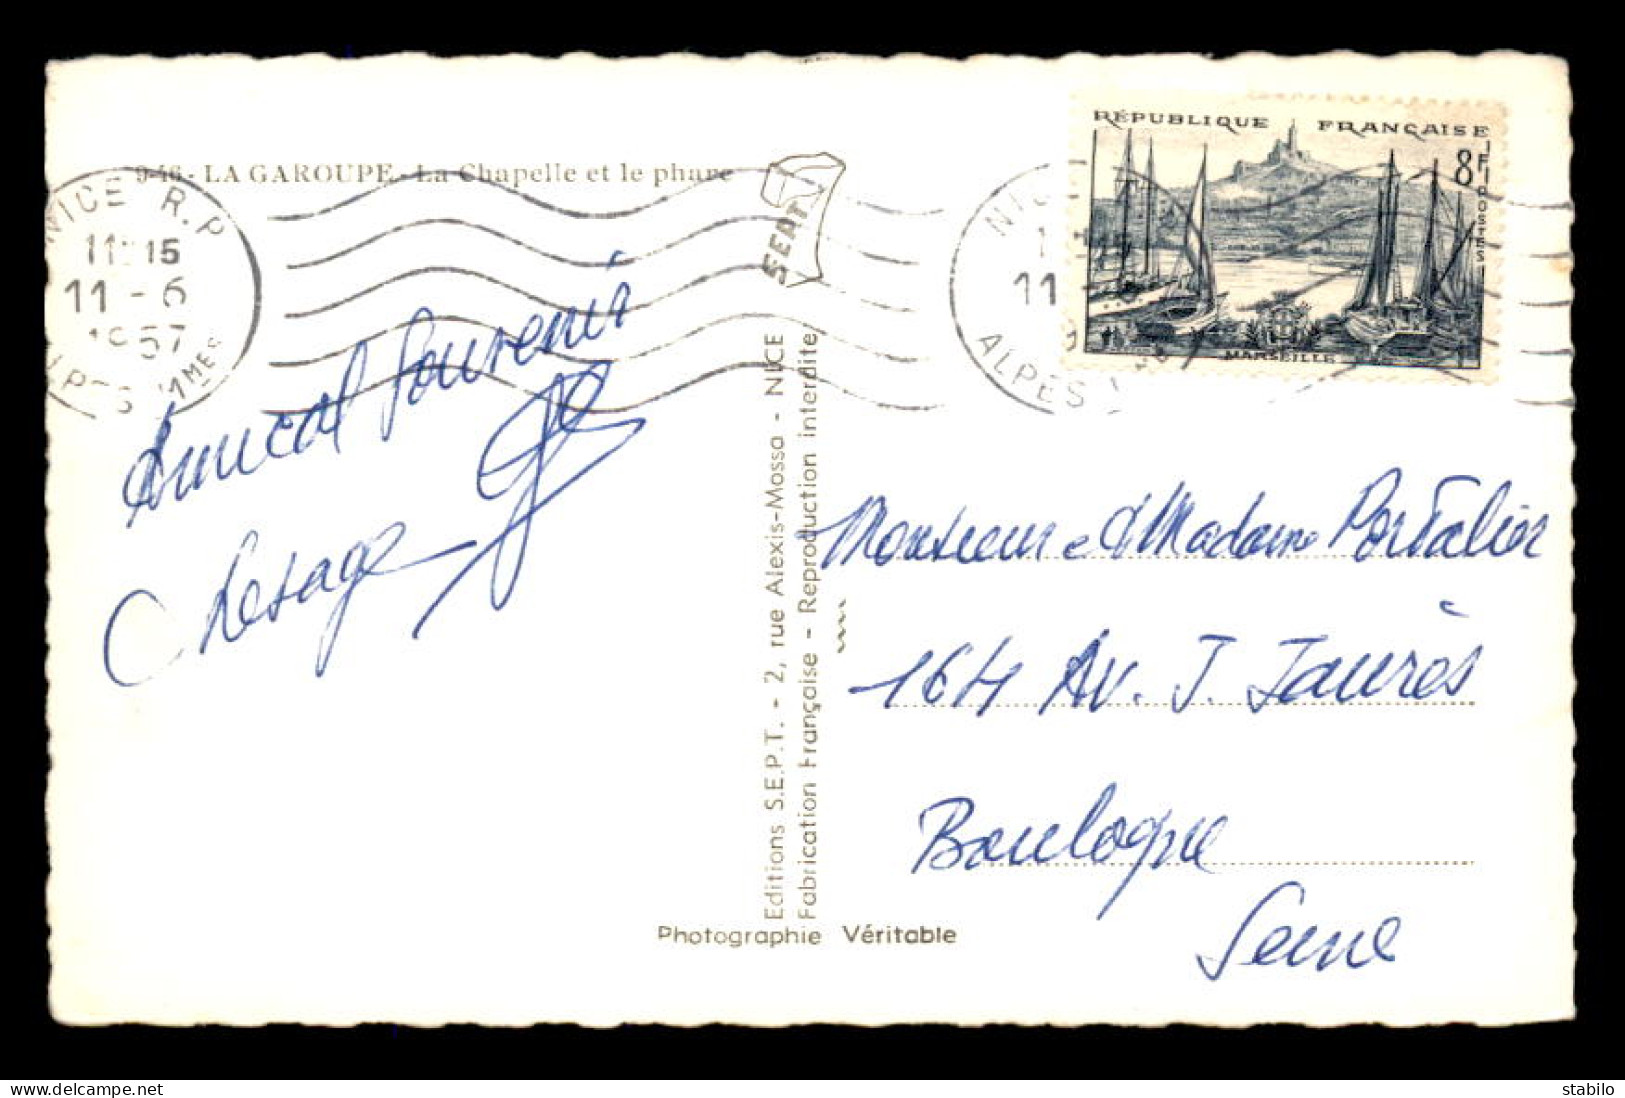 9-46 - LA GAROUPE - La Chapelle et le phare
NICE R.P.
11 15
11 - 6
1957
ALPES MMES
SEPT
RÉPUBLIQUE FRANÇAISE
8F
POSTES
MARSEILLE
11
ALPES
Amical Souvenir
Lesage
Editions S.E.P.T. - 2, rue Alexis-Mossa - NICE
Fabrication Française - Reproduction interdite
Monsieur et Madame Portalier
164 Av. J. Jaurès
Boulogne
Seine
Photographie Véritable
stabilo